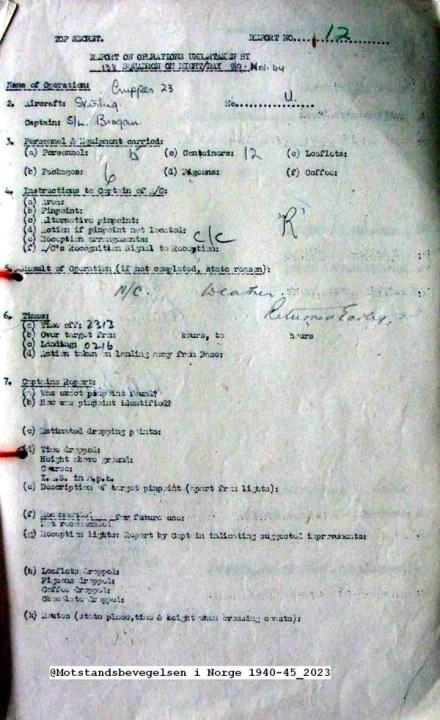 TOP SECRET. REPORT NO. 12
REPORT ON OPERATIONS UNDERTAKEN BY
SQUADRON ON NIGHT/DAY Nov. 44
Name of Operation: Crupper 23
2. Aircraft: Stirling. No. U.
Captain: S/L. Brogan.
3. Personnel & Equipment carried:
(a) Personnel: (c) Containers: 12 (e) Leaflets:
(b) Packages: 6 (d) Pigeons: (f) Coffee:
4. Instructions to Captain of A/C:
(a) Area:
(b) Pinpoint:
(c) Alternative pinpoint: 'R'
(d) Action if pinpoint not located:
(e) Reception arrangements: C/C
(f) A/C's Recognition Signal to Reception:
5. Result of Operation (if not completed, state reason):
N/C. Weather.
Returned Early.
6. Times:
(a) Time off: 2313
(b) Over target from hours, to hours
(c) Landing: 0216
(d) Action taken on landing away from Base:
7. Captains Report:
(a) Was exact pinpoint found?
(b) How was pinpoint identified?
(c) Estimated dropping points:
(d) Time dropped:
Height above ground:
Course:
I.A.S. in m.p.h.
(e) Description of target pinpoint (apart from lights):
(f) Recommended for future use:
Not recommended
(g) Reception lights: Report by Capt in indicating suggested improvements:
(h) Leaflets dropped:
Pigeons dropped:
Coffee dropped:
Chocolate dropped:
(k) Routes (state place, time & height when crossing coasts):
@Motstandsbevegelsen i Norge 1940-45_2023